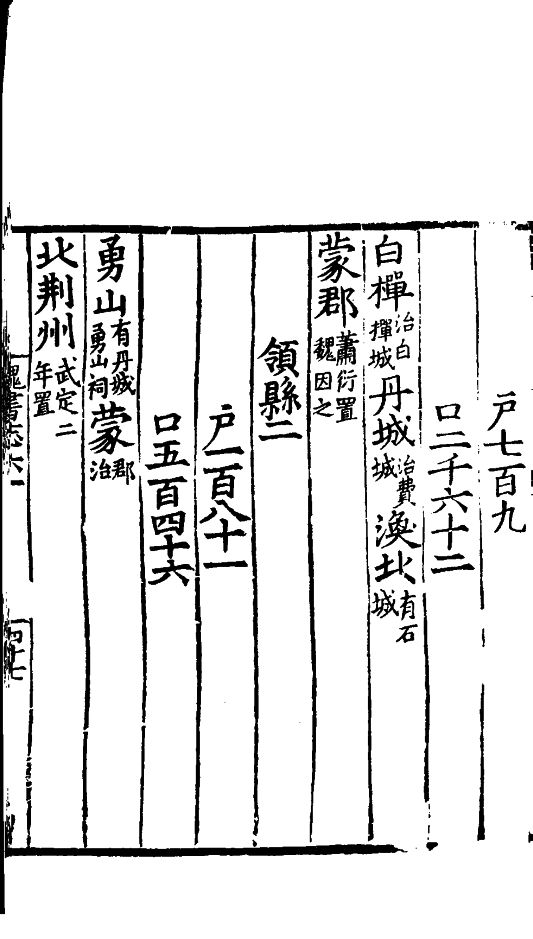 戶七百九
口二千六十二
白樿治白撣城丹城治費城渙北有石城
蒙郡蕭衍置魏因之
領縣二
戶一百八十一
口五百四十六
勇山有丹城勇山祠蒙郡治
北荆州武定二年置
魏書志六